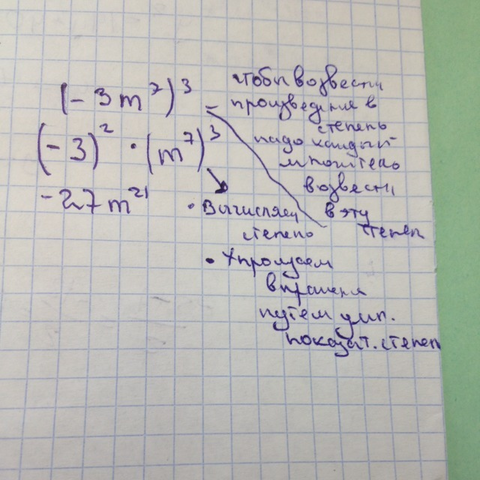 (-3m⁷)³ -
(-3)² · (m⁷)³
-27m²¹
чтобы возвести
произведение в
степень
надо каждый
множитель
возвести
в эту
степен
• Вычисляем
степень
• Упрощаем
путём умн.
показат. степен